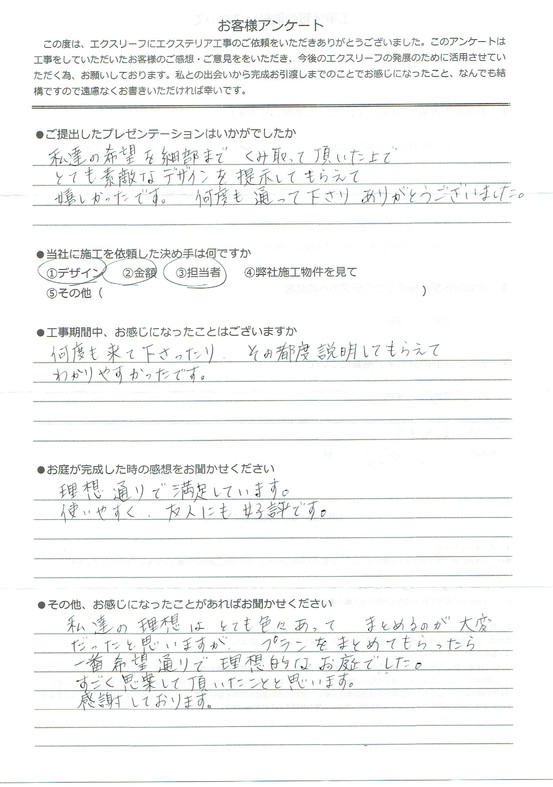 お客様アンケート
この度は、エクスリーフにエクステリア工事のご依頼をいただきありがとうございました。このアンケートは
工事をしていただいたお客様のご感想・ご意見をいただき、今後のエクスリーフの発展のために活用させてい
ただく為、お願いしております。私との出会いから完成お引渡しまでのことでお感じになったこと、なんでも結
構ですので遠慮なくお書きいただければ幸いです。
●ご提出したプレゼンテーションはいかがでしたか
私達の希望を細部まで くみ取って頂いた上で
とても素敵なデザインを提示してもらえて
嬉しかったです。 何度も通って下さり ありがとうございました。
●当社に施工を依頼した決め手は何ですか
①デザイン ②金額 ③担当者 ④弊社施工物件を見て
⑤その他（ ）
●工事期間中、お感じになったことはございますか
何度も来て下さったり、その都度説明してもらえて
わかりやすかったです。
●お庭が完成した時の感想をお聞かせください
理想通りで満足しています。
使いやすく、友人にも好評です。
●その他、お感じになったことがあればお聞かせください
私達の理想はとても色々あって まとめるのが大変
だったと思いますが、プランをまとめてもらったら
一番希望通りで理想的なお庭でした。
すごく思案して頂いたことと思います。
感謝しております。